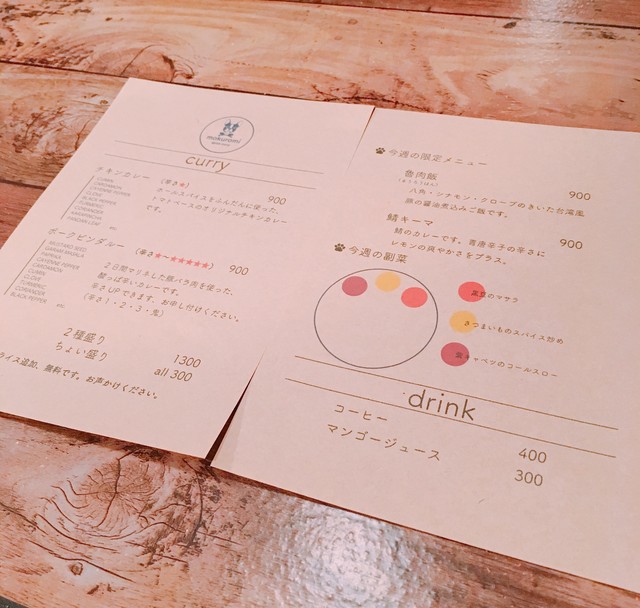 mokuromi
curry
チキンカレー (辛さ★) 900
CUMIN
CARDAMON
CAYENNE PEPPER
CLOVE
BLACK PEPPER
TURMERIC
CORIANDER
etc
ホールスパイスをふんだんに使った、
トマトベースのオリジナルチキンカレー
です。
ポークビンダルー (辛さ★~★★★★★★) 900
MUSTARD SEED
GARAM MASALA
PAPRIKA
CAYENNE PEPPER
CARDAMON
CUMIN
CLOVE
TURMERIC
CORIANDER
BLACK PEPPER
etc
2日間マリネした豚バラ肉を使った、
酸っぱ辛いカレーです。
辛さUPできます。お申し付けください。
(辛さ1・2・3・鬼)
2種盛り 1300
ちょい盛り all 300
ライス追加、無料です。お声かけください。
今週の限定メニュー
魯肉飯 900
(ルウロウハン)
八角・シナモン・クローブのきいた台湾風
豚の醤油煮込みご飯です。
鯖キーマ 900
鯖のカレーです。青唐辛子の辛さに
レモンの爽やかさをプラス。
今週の副菜
のマサラ
さつまいものスパイス炒め
紫キャベツのコールスロー
drink
コーヒー 400
マンゴージュース 300